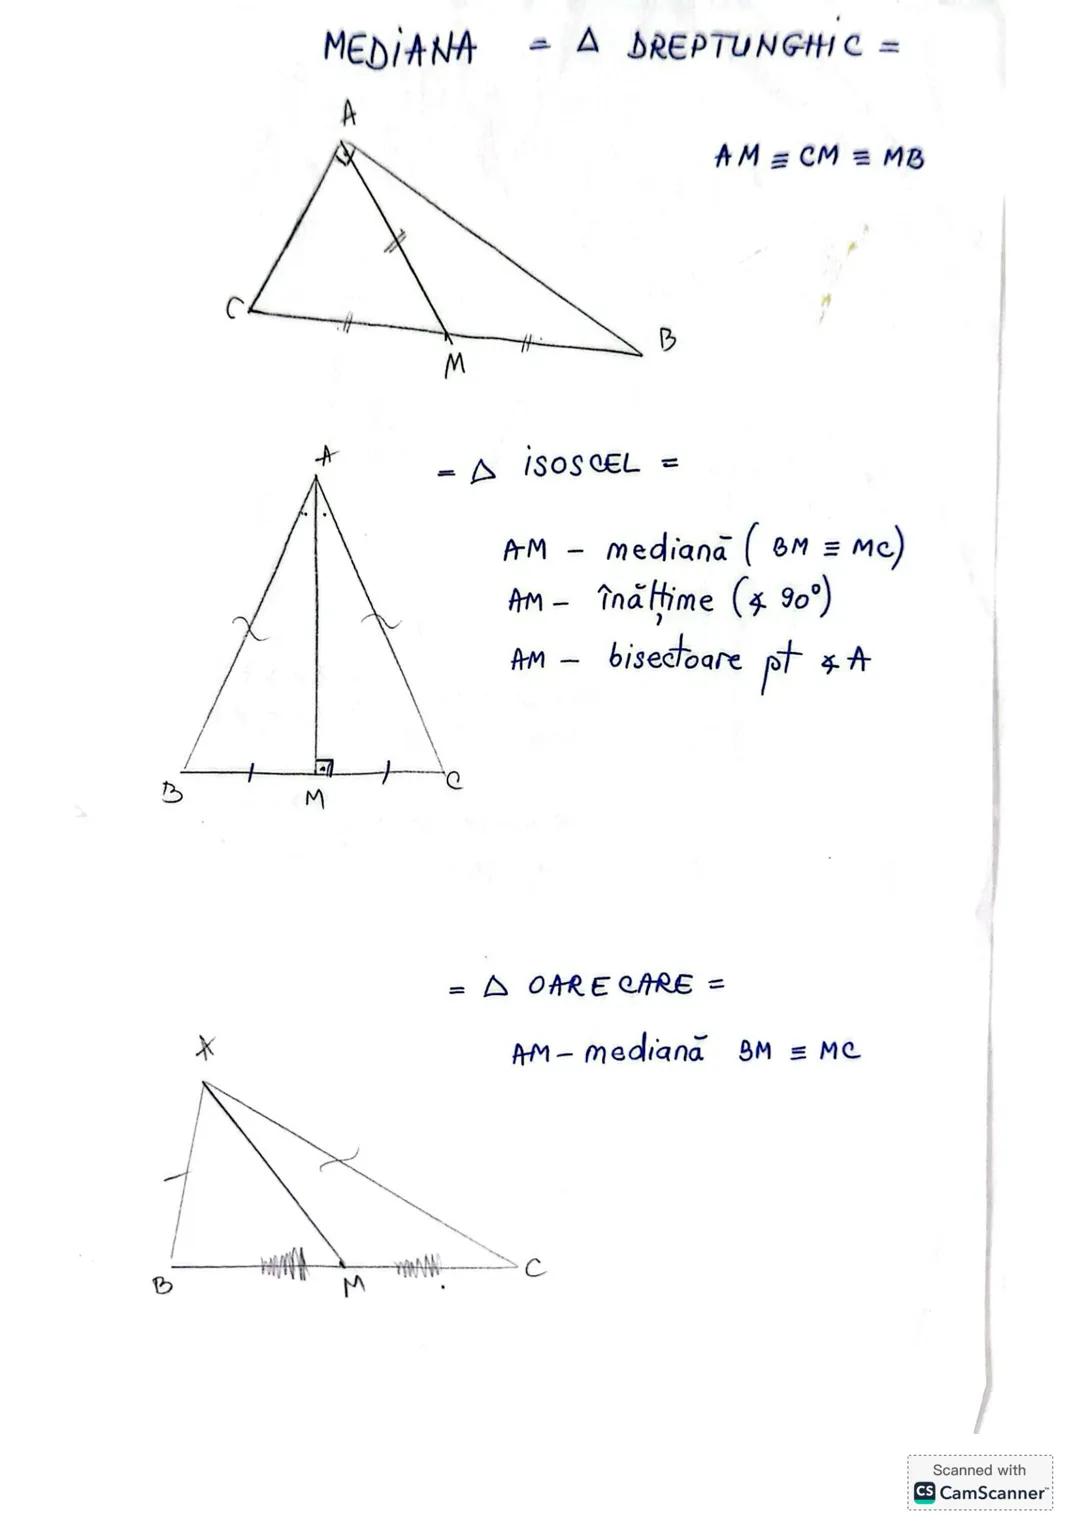 MEDIANA = Δ DREPTUNGHIC =
A
AM ≡ CM ≡ MB
C
B
M
A
= Δ ISOSCEL =
AM - mediană ( BM ≡ MC)
AM - înălțime (∢ 90°)
AM - bisectoare pt ∢ A
B
M
C
= Δ OARECARE =
A
AM - mediană BM ≡ MC
B
M
C
Scanned with
CS CamScanner